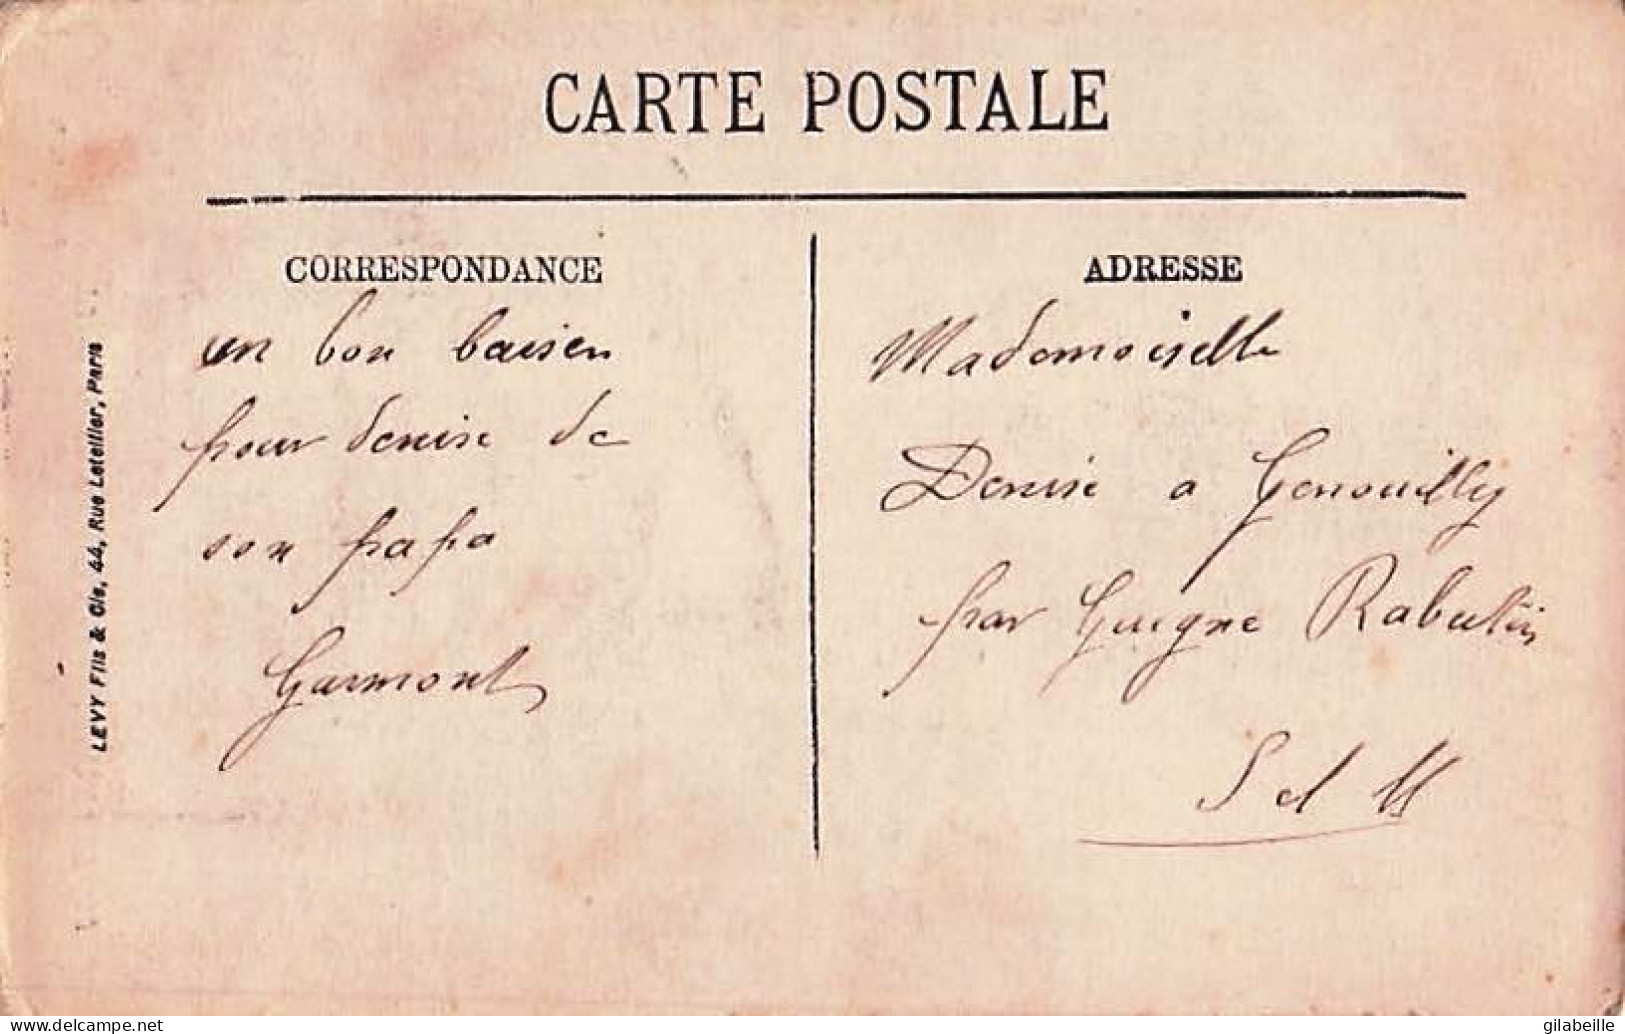 CARTE POSTALE
CORRESPONDANCE
un bon baiser
pour denise de
son papa
Garmont
ADRESSE
Mademoiselle
Denise a Genouilly
par Guigne Rabutin
S et M
LEVY Fils & Cie, 44, Rue Letellier, Paris
www.delcampe.net
gilabeille